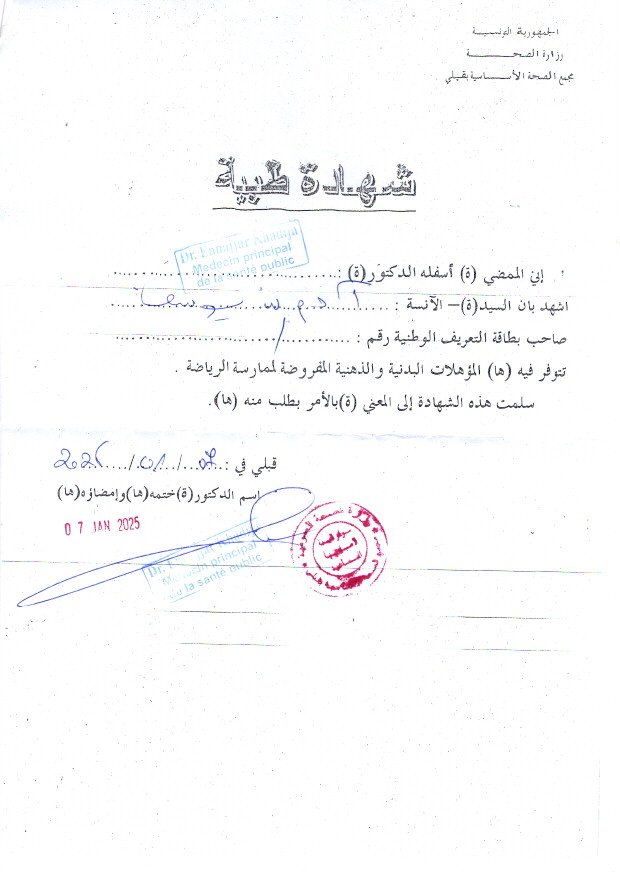 الجمهورية التونسية
وزارة الصحة
مجمع الصحة الأساسية بقبلي
شهادة طبية
Medecin principal
de la santé public
إني الممضي (ة) أسفله الدكتور(ة) :
اشهد بان السيد(ة)– الآنسة :
صاحب بطاقة التعريف الوطنية رقم : /
تتوفر فيه (ها) المؤهلات البدنية والذهنية المفروضة لممارسة الرياضة .
سلمت هذه الشهادة إلى المعني (ة)بالأمر بطلب منه (ها).
قبلي في : 07/01/2025
اسم الدكتور(ة)ختمه(ها)وإمضاؤه(ها)
07 JAN 2025
Medecin principal
de la santé public